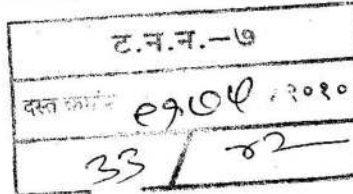 ट.न.न.-७
दस्त क्रमांक ९१७५ / २०१०
33 / ४२